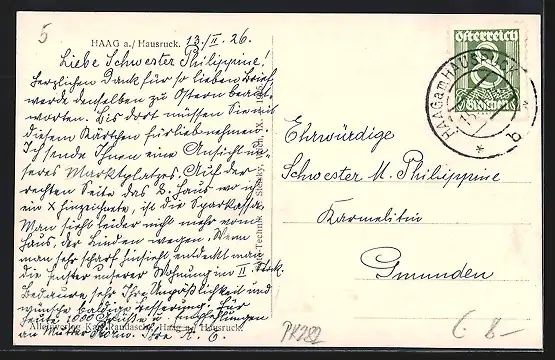 5
HAAG a./Hausruck. 13./II. 26.
Liebe Schwester Philippine!
Herzlichen Dank für so lieben Brief,
werde denselben zu Ostern beant-
worten. Bis dort müssen Sie mit
diesem Kärtchen fürliebnehmen.
Ich sende Ihnen eine Ansicht un-
seres Marktplatzes. Auf der
rechten Seite das 3. Haus wo ich
ein x hinzeichnete, ist die Sparkassa.
Man sieht leider nicht mehr vom
Haus, der Linden wegen. Wenn
man sehr scharf hinsieht, entdeckt man
die Fenster unserer Wohnung im II. Stock.
Bedaure sehr Ihre Unpäßlichkeit und
wünsche baldige Besserung. Für
heute 1000 Grüße u. Empfehlungen
an Mutter Ihre
Alleinverlag Karl Randaschl, Haag a./Hausruck.
Ehrwürdige
Schwester M. Philippine
Karmelitin
Gmunden
Österreich
8
Groschen
HAAG am HAUSRUCK
* b
PK282
C. 8-